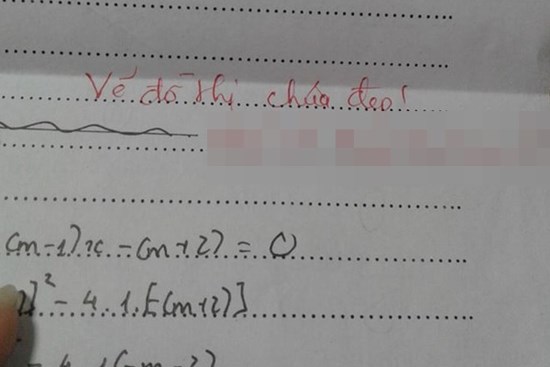 Vẽ đồ thị chưa đẹp!
(m-1)x - (m+2) = 0
]² - 4.1.[(m+2)]
- 4.1(-m-2)